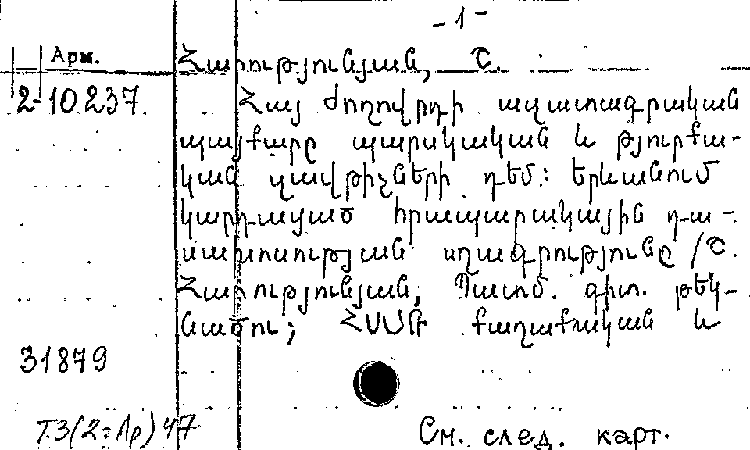 - 1 -
Арм.
Հարությունյան, Շ.
2-10237
Հայ ժողովրդի ազատագրական
պայքարը պարսկական և թյուրքա-
կան զավթիչների դեմ: Երևանում
կարդացած հրապարակային դա-
սախոսության սղագրությունը /Շ.
Հարությունյան, Պատմ. գիտ. թեկ-
նածու; ՀՍՍՌ քաղաքական և
31879
Т3(2=Ар)47
См. след. карт.